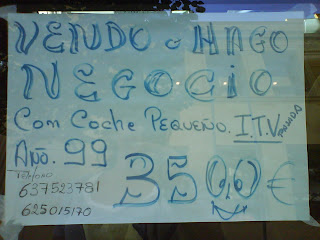 VENDO o HAGO
NEGOCIO
Com Coche PEQUEÑO. I.T.V PASADA
AÑO. 99
Teléfono
637523781
625015170
3500 €